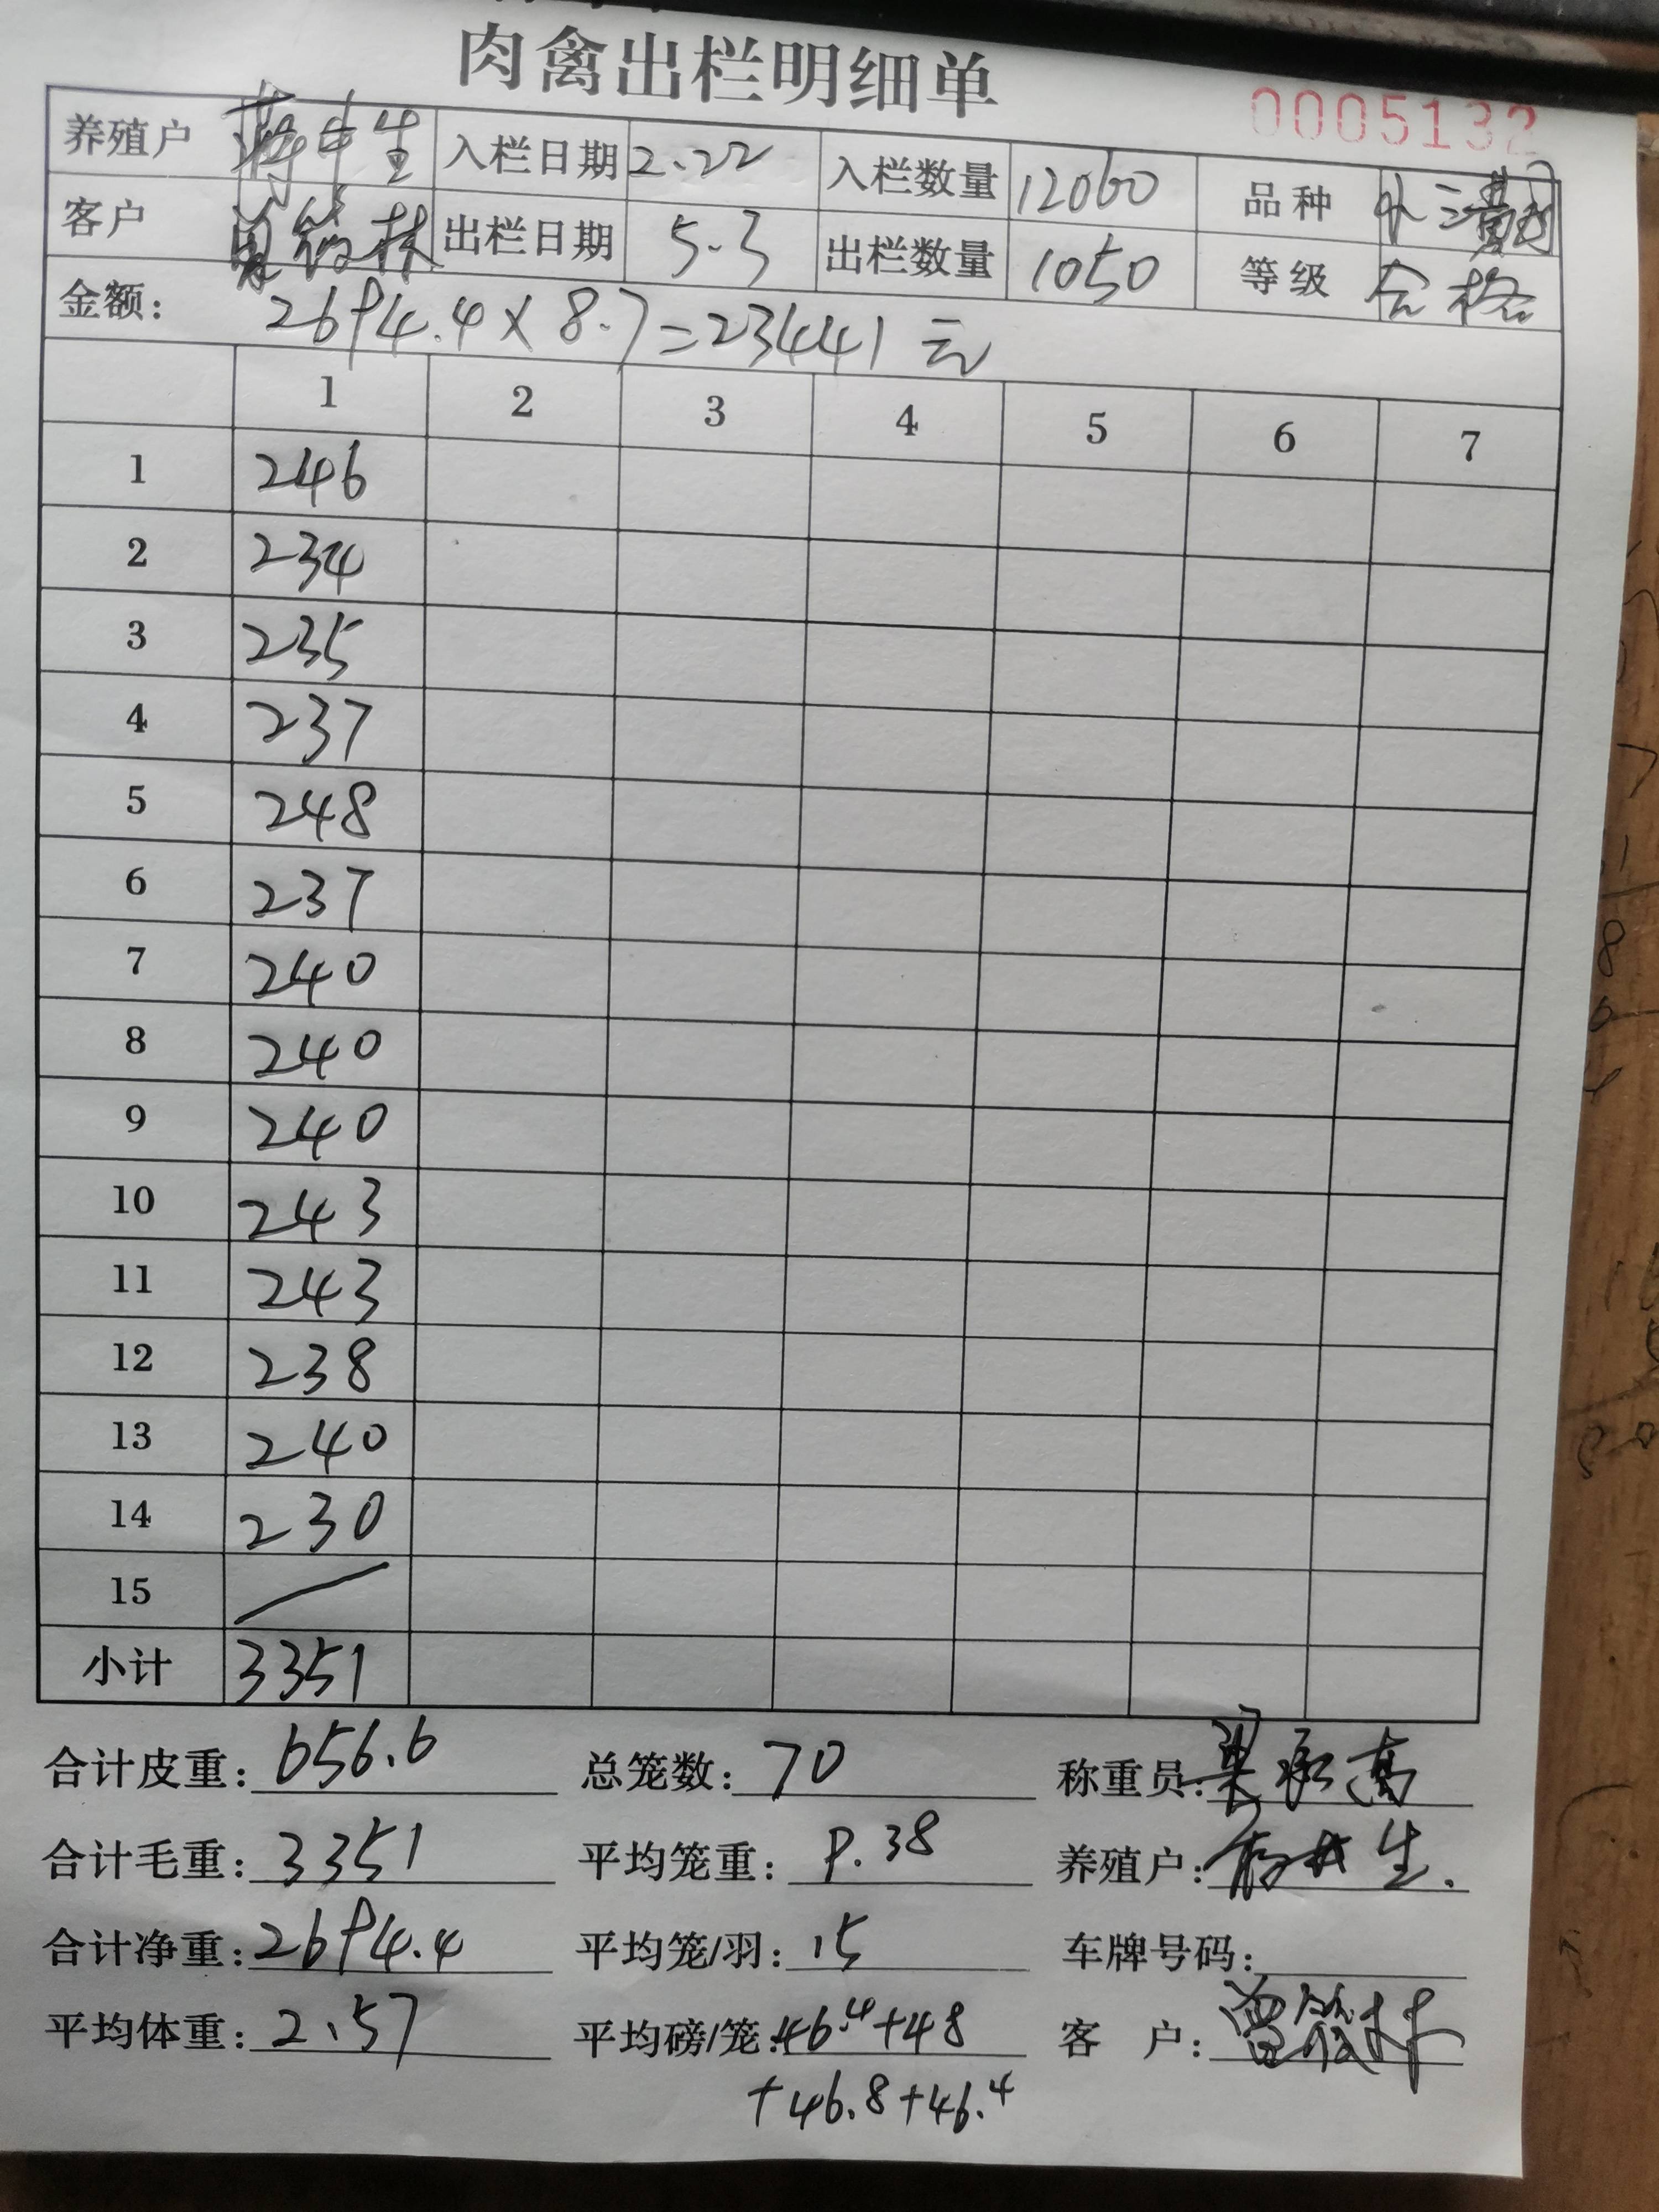 肉禽出栏明细单
0005132
养殖户 入栏日期 2.22 入栏数量 12060 品种
客户 出栏日期 5.3 出栏数量 1050 等级 合格
金额: 2694.4×8.7=23441元
1 2 3 4 5 6 7
1 246
2 234
3 235
4 237
5 248
6 237
7 240
8 240
9 240
10 243
11 243
12 238
13 240
14 230
15
小计 3351
合计皮重: 656.6 总笼数: 70 称重员:
合计毛重: 3351 平均笼重: 9.38 养殖户:
合计净重: 2694.4 平均笼/羽: 15 车牌号码:
平均体重: 2.57 平均磅/笼: 46.4+48 客户:
+46.8+46.4